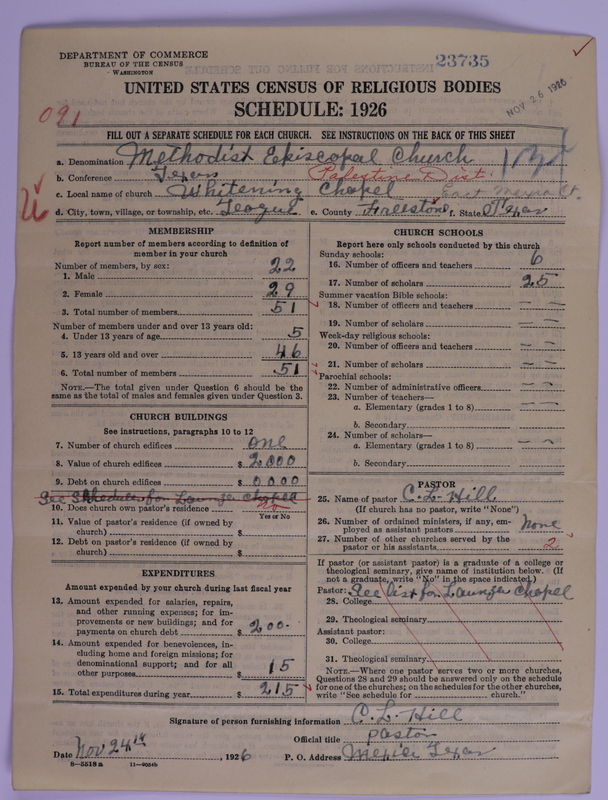 DEPARTMENT OF COMMERCE
BUREAU OF THE CENSUS
WASHINGTON
23735
NOV 26 1926
UNITED STATES CENSUS OF RELIGIOUS BODIES
SCHEDULE: 1926
091
FILL OUT A SEPARATE SCHEDULE FOR EACH CHURCH. SEE INSTRUCTIONS ON THE BACK OF THIS SHEET
a. Denomination Methodist Episcopal Church
b. Conference Texas Palestine Dist.
c. Local name of church Whitening Chapel East
d. City, town, village, or township, etc. Teague e. County Freestone f. State Texas
MEMBERSHIP
Report number of members according to definition of member in your church
Number of members, by sex:
1. Male 22
2. Female 29
3. Total number of members 51
Number of members under and over 13 years old:
4. Under 13 years of age 5
5. 13 years old and over 46
6. Total number of members 51
NOTE.—The total given under Question 6 should be the same as the total of males and females given under Question 3.
CHURCH BUILDINGS
See instructions, paragraphs 10 to 12
7. Number of church edifices one
8. Value of church edifices $ 2000
9. Debt on church edifices $ 0000
See Schedules for Chapel
10. Does church own pastor's residence No
Yes or No
11. Value of pastor's residence (if owned by church) $
12. Debt on pastor's residence (if owned by church) $
EXPENDITURES
Amount expended by your church during last fiscal year
13. Amount expended for salaries, repairs, and other running expenses; for improvements or new buildings; and for payments on church debt $ 200-
14. Amount expended for benevolences, including home and foreign missions; for denominational support; and for all other purposes $ 15
15. Total expenditures during year $ 215
CHURCH SCHOOLS
Report here only schools conducted by this church
Sunday schools:
16. Number of officers and teachers 6
17. Number of scholars 25
Summer vacation Bible schools:
18. Number of officers and teachers — —
19. Number of scholars — —
Week-day religious schools:
20. Number of officers and teachers — —
21. Number of scholars — —
Parochial schools:
22. Number of administrative officers — —
23. Number of teachers—
a. Elementary (grades 1 to 8) — —
b. Secondary
24. Number of scholars—
a. Elementary (grades 1 to 8) — —
b. Secondary
PASTOR
25. Name of pastor C. L. Hill
(If church has no pastor, write "None")
26. Number of ordained ministers, if any, employed as assistant pastors None
27. Number of other churches served by the pastor or his assistants 2
If pastor (or assistant pastor) is a graduate of a college or theological seminary, give name of institution below. (If not a graduate, write "No" in the space indicated.)
Pastor: See list for Chapel
28. College
29. Theological seminary
Assistant pastor:
30. College
31. Theological seminary
NOTE.—Where one pastor serves two or more churches, Questions 28 and 29 should be answered only on the schedule for one of the churches; on the schedules for the other churches, write "See schedule for ______ church."
Signature of person furnishing information C. L. Hill
Official title pastor
Date Nov 24th, 1926 P. O. Address Mexia Texas
8—5518 a 11—9054b